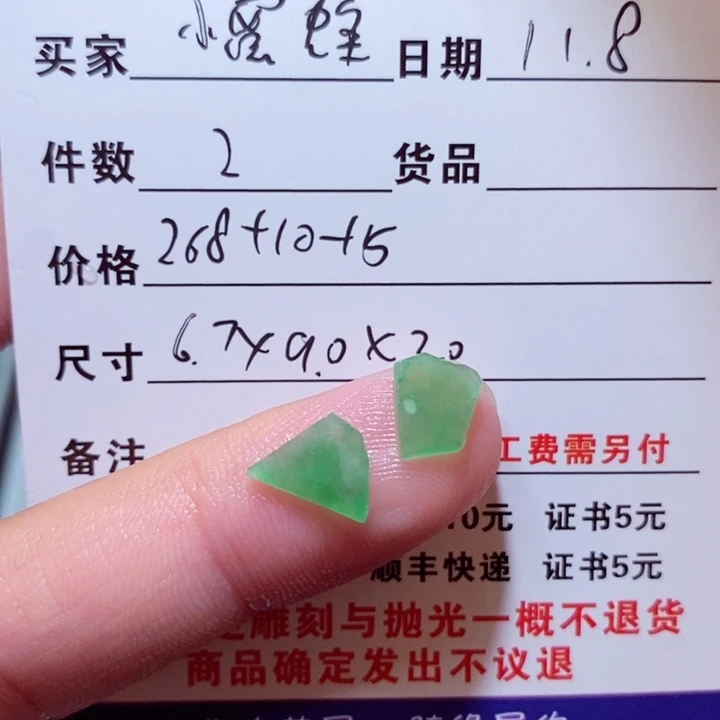 买家 小蜜蜂 日期 11.8
件数 2 货品
价格 268+10+5
尺寸 6.7×9.0×2.0
备注 工费需另付
10元 证书5元
顺丰快递 证书5元
雕刻与抛光一概不退货
商品确定发出不议退